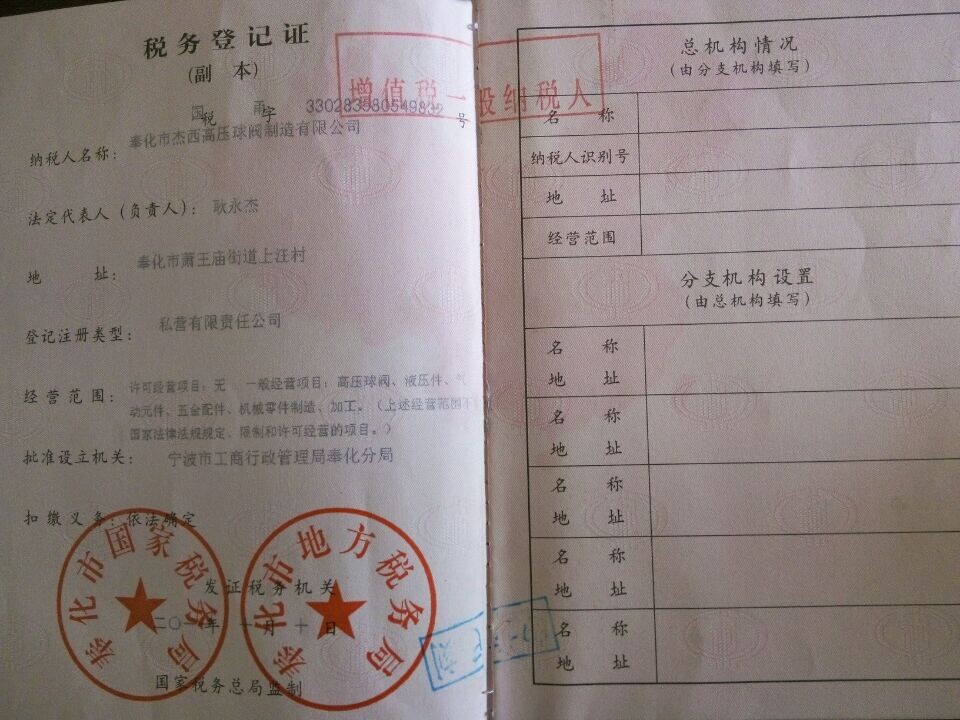 税务登记证
(副 本)
增值税一般纳税人
国 甬
税 字 330283580549832 号
纳税人名称: 奉化市杰西高压球阀制造有限公司
法定代表人(负责人): 耿永杰
地 址: 奉化市萧王庙街道上汪村
登记注册类型: 私营有限责任公司
经营范围: 许可经营项目:无 一般经营项目:高压球阀、液压件、气
动元件、五金配件、机械零件制造、加工。(上述经营范围不
国家法律法规规定、限制和许可经营的项目。)
批准设立机关: 宁波市工商行政管理局奉化分局
扣缴义务: 依法确定
奉化市国家税务局
奉化市地方税务局
发证税务机关
二〇 年一月十日
国家税务总局监制
总机构情况
(由分支机构填写)
名 称
纳税人识别号
地 址
经营范围
分支机构设置
(由总机构填写)
名 称
地 址
名 称
地 址
名 称
地 址
名 称
地 址
名 称
地 址